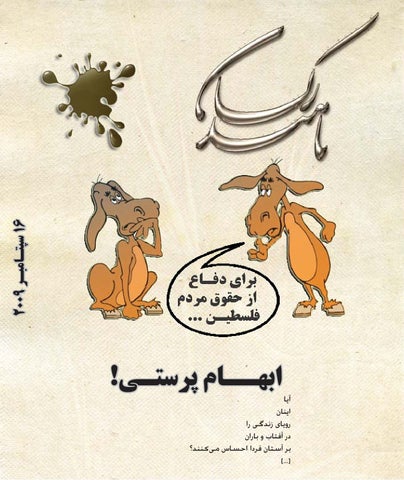 برای دفاع
از حقوق مردم
فلسطین ...
۱۶ سپتامبر ۲۰۰۹
ابهام پرستی!
آیا
اینان
رویای زندگی را
در آفتاب و باران
بر آستان فردا احساس می‌کنند؟
[...]